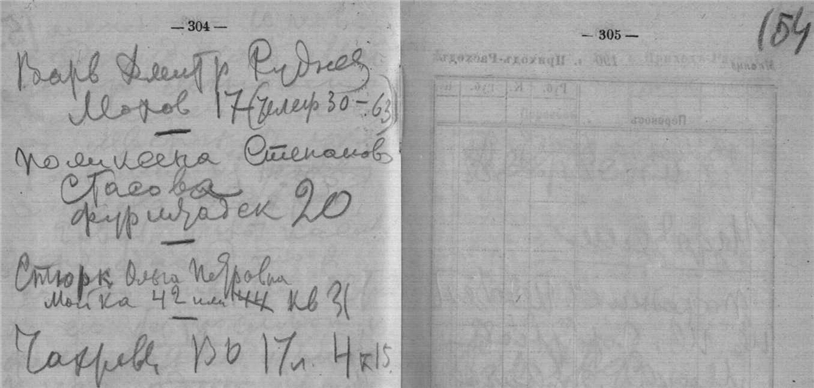 — 304 —
Варв Дмитр Руднев
Мохов 17 (телеф 30-63)
Поликсена Степановн
Стасова
Фурштадск 20
Стюрк Ольга Петровна
Мойка 42 или 44 кв 31
ВО 17 л. 4 к 15
— 305 —
154
Приходъ-Расходъ
Руб. К.
Переносъ